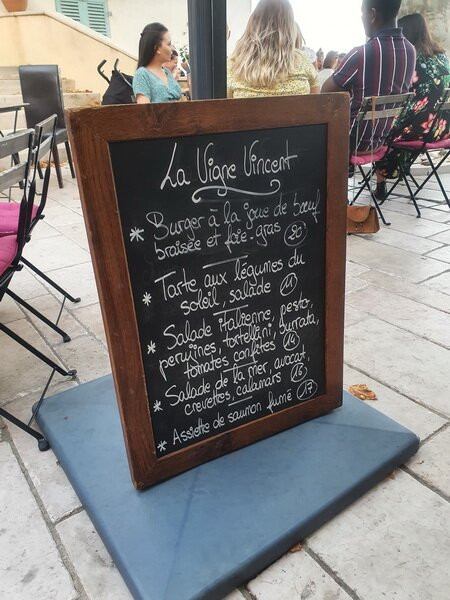 La Vigne Vincent
* Burger à la joue de bœuf
braisée et foie-gras 20
* Tarte aux légumes du
soleil, salade 11
* Salade italienne, pesto,
tortellini, burrata,
tomates confites 14
* Salade de la mer, avocat,
crevettes, calamars 16
* Assiette de saumon fumé 17